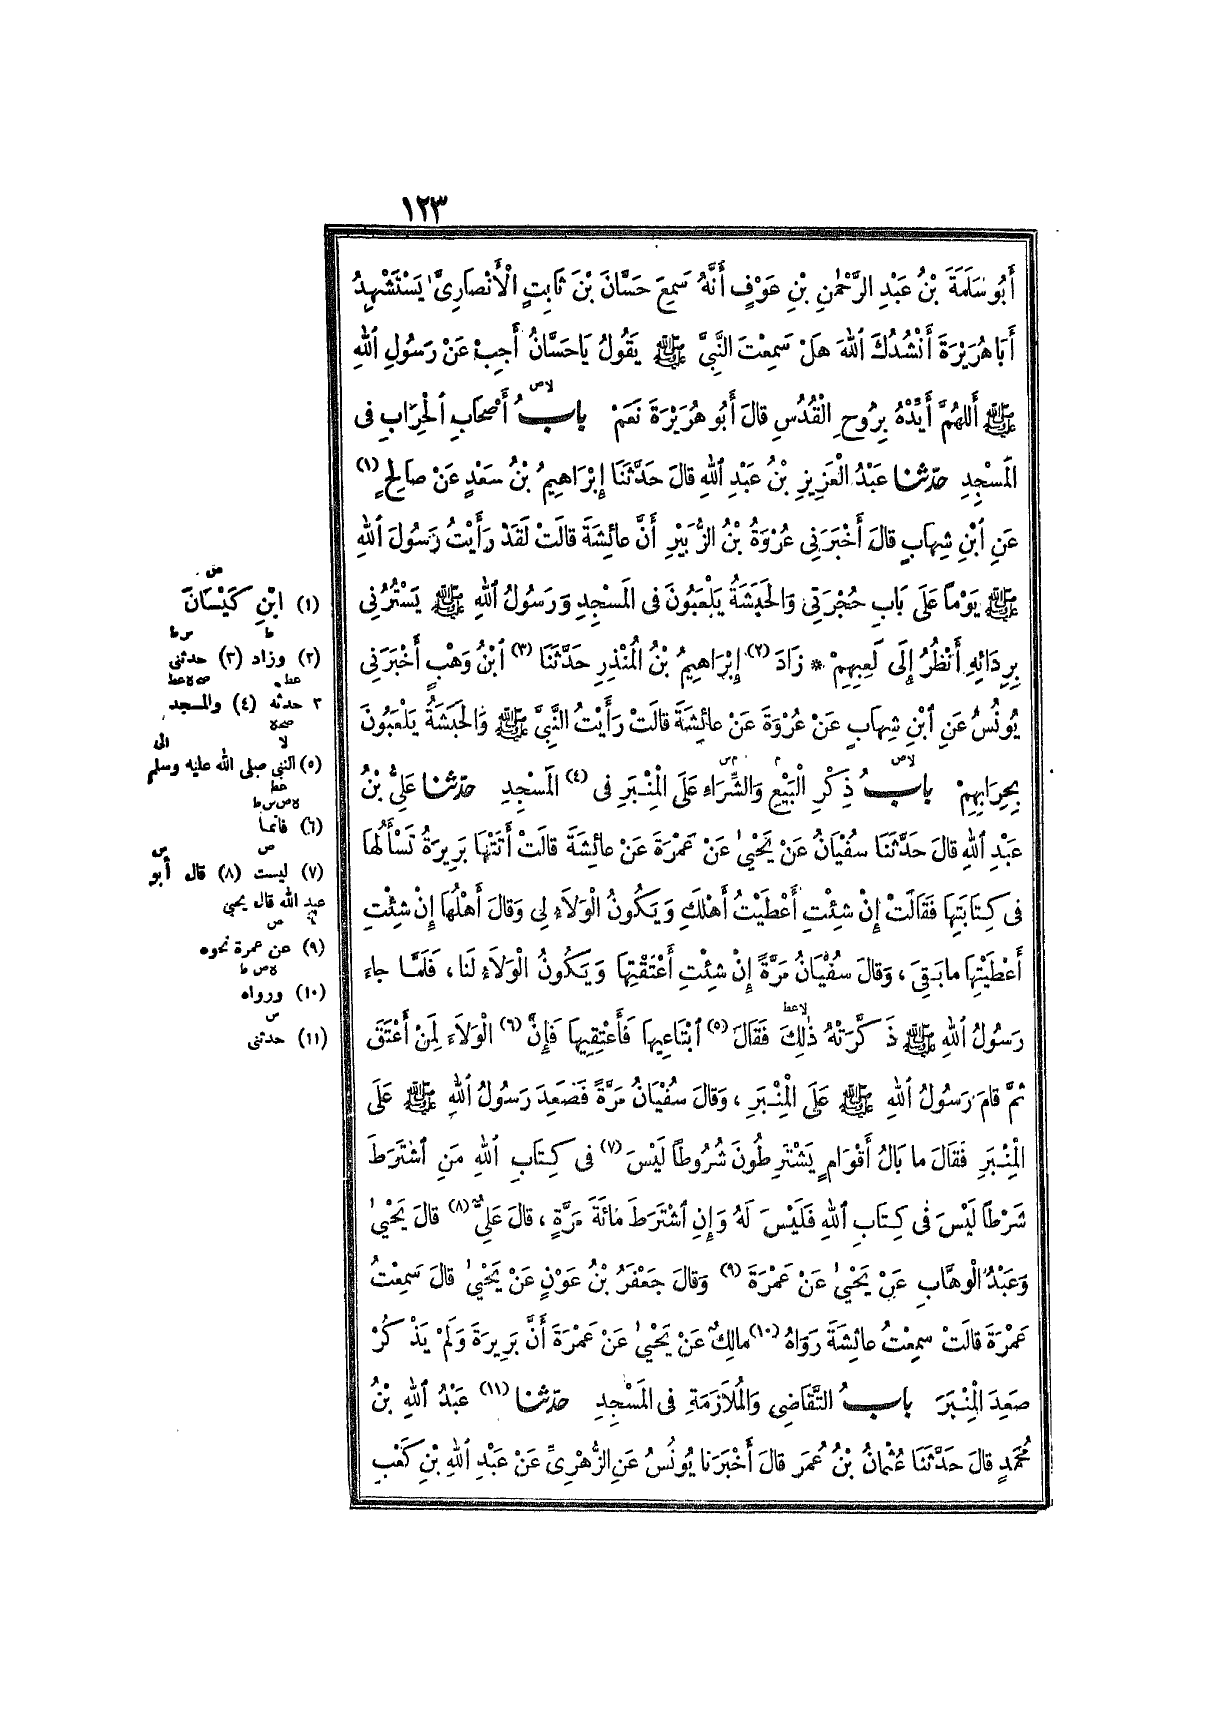 ١٢٣
أَبُو سَلَمَةَ بْنُ عَبْدِ الرَّحْمٰنِ بْنِ عَوْفٍ أَنَّهُ سَمِعَ حَسَّانَ بْنَ ثَابِتٍ الْأَنْصَارِيَّ يَسْتَشْهِدُ
أَبَا هُرَيْرَةَ أَنْشُدُكَ اللهَ هَلْ سَمِعْتَ النَّبِيَّ ﷺ يَقُولُ يَا حَسَّانُ أَجِبْ عَنْ رَسُولِ اللهِ
ﷺ أَللهُمَّ أَيِّدْهُ بِرُوحِ الْقُدُسِ قَالَ أَبُو هُرَيْرَةَ نَعَمْ بابُ أَصْحَابِ الْحِرَابِ فِى
الْمَسْجِدِ حدّثنا عَبْدُ الْعَزِيزِ بْنُ عَبْدِ اللهِ قَالَ حَدَّثَنَا إِبْرَاهِيمُ بْنُ سَعْدٍ عَنْ صَالِحٍ (١)
عَنِ ابْنِ شِهَابٍ قَالَ أَخْبَرَنِى عُرْوَةُ بْنُ الزُّبَيْرِ أَنَّ عَائِشَةَ قَالَتْ لَقَدْ رَأَيْتُ رَسُولَ اللهِ
ﷺ يَوْمًا عَلَى بَابِ حُجْرَتِى وَالْحَبَشَةُ يَلْعَبُونَ فِى الْمَسْجِدِ وَرَسُولُ اللهِ ﷺ يَسْتُرُنِى
بِرِدَائِهِ أَنْظُرُ إِلَى لَعِبِهِمْ * زَادَ (٢) إِبْرَاهِيمُ بْنُ الْمُنْذِرِ حَدَّثَنَا (٣) ابْنُ وَهْبٍ أَخْبَرَنِى
يُونُسُ عَنِ ابْنِ شِهَابٍ عَنْ عُرْوَةَ عَنْ عَائِشَةَ قَالَتْ رَأَيْتُ النَّبِيَّ ﷺ وَالْحَبَشَةُ يَلْعَبُونَ
بِحِرَابِهِمْ بابُ ذِكْرِ الْبَيْعِ وَالشِّرَاءِ عَلَى الْمِنْبَرِ فِى (٤) الْمَسْجِدِ حدّثنا عَلِيُّ بْنُ
عَبْدِ اللهِ قَالَ حَدَّثَنَا سُفْيَانُ عَنْ يَحْيٰى عَنْ عَمْرَةَ عَنْ عَائِشَةَ قَالَتْ أَتَتْهَا بَرِيرَةُ تَسْأَلُهَا
فِى كِتَابَتِهَا فَقَالَتْ إِنْ شِئْتِ أَعْطَيْتُ أَهْلَكِ وَيَكُونُ الْوَلَاءُ لِى وَقَالَ أَهْلُهَا إِنْ شِئْتِ
أَعْطَيْتِهَا مَا بَقِىَ ، وَقَالَ سُفْيَانُ مَرَّةً إِنْ شِئْتِ أَعْتَقْتِهَا وَيَكُونُ الْوَلَاءُ لَنَا ، فَلَمَّا جَاءَ
رَسُولُ اللهِ ﷺ ذَكَّرَتْهُ ذٰلِكَ فَقَالَ (٥) ابْتَاعِيهَا فَأَعْتِقِيهَا فَإِنَّ (٦) الْوَلَاءَ لِمَنْ أَعْتَقَ
ثُمَّ قَامَ رَسُولُ اللهِ ﷺ عَلَى الْمِنْبَرِ ، وَقَالَ سُفْيَانُ مَرَّةً فَصَعِدَ رَسُولُ اللهِ ﷺ عَلَى
الْمِنْبَرِ فَقَالَ مَا بَالُ أَقْوَامٍ يَشْتَرِطُونَ شُرُوطًا لَيْسَ (٧) فِى كِتَابِ اللهِ مَنِ اشْتَرَطَ
شَرْطًا لَيْسَ فِى كِتَابِ اللهِ فَلَيْسَ لَهُ وَإِنِ اشْتَرَطَ مِائَةَ مَرَّةٍ ، قَالَ عَلِيٌّ (٨) قَالَ يَحْيٰى
وَعَبْدُ الْوَهَّابِ عَنْ يَحْيٰى عَنْ عَمْرَةَ (٩) وَقَالَ جَعْفَرُ بْنُ عَوْنٍ عَنْ يَحْيٰى قَالَ سَمِعْتُ
عَمْرَةَ قَالَتْ سَمِعْتُ عَائِشَةَ رَوَاهُ (١٠) مَالِكٌ عَنْ يَحْيٰى عَنْ عَمْرَةَ أَنَّ بَرِيرَةَ وَلَمْ يَذْكُرْ
صَعِدَ الْمِنْبَرَ بابُ التَّقَاضِى وَالْمُلَازَمَةِ فِى الْمَسْجِدِ حدّثنا (١١) عَبْدُ اللهِ بْنُ
مُحَمَّدٍ قَالَ حَدَّثَنَا عُثْمَانُ بْنُ عُمَرَ قَالَ أَخْبَرَنَا يُونُسُ عَنِ الزُّهْرِيِّ عَنْ عَبْدِ اللهِ بْنِ كَعْبِ
(١) ابْنِ كَيْسَانَ
(٢) وزاد (٣) حدثنى
٣ حدثه (٤) والمسجد
(٥) النبى صلى الله عليه وسلم
(٦) فانما
(٧) ليست (٨) قال أبو
عبد الله قال يحيى
(٩) عن عمرة نحوه
(١٠) ورواه
(١١) حدثنى